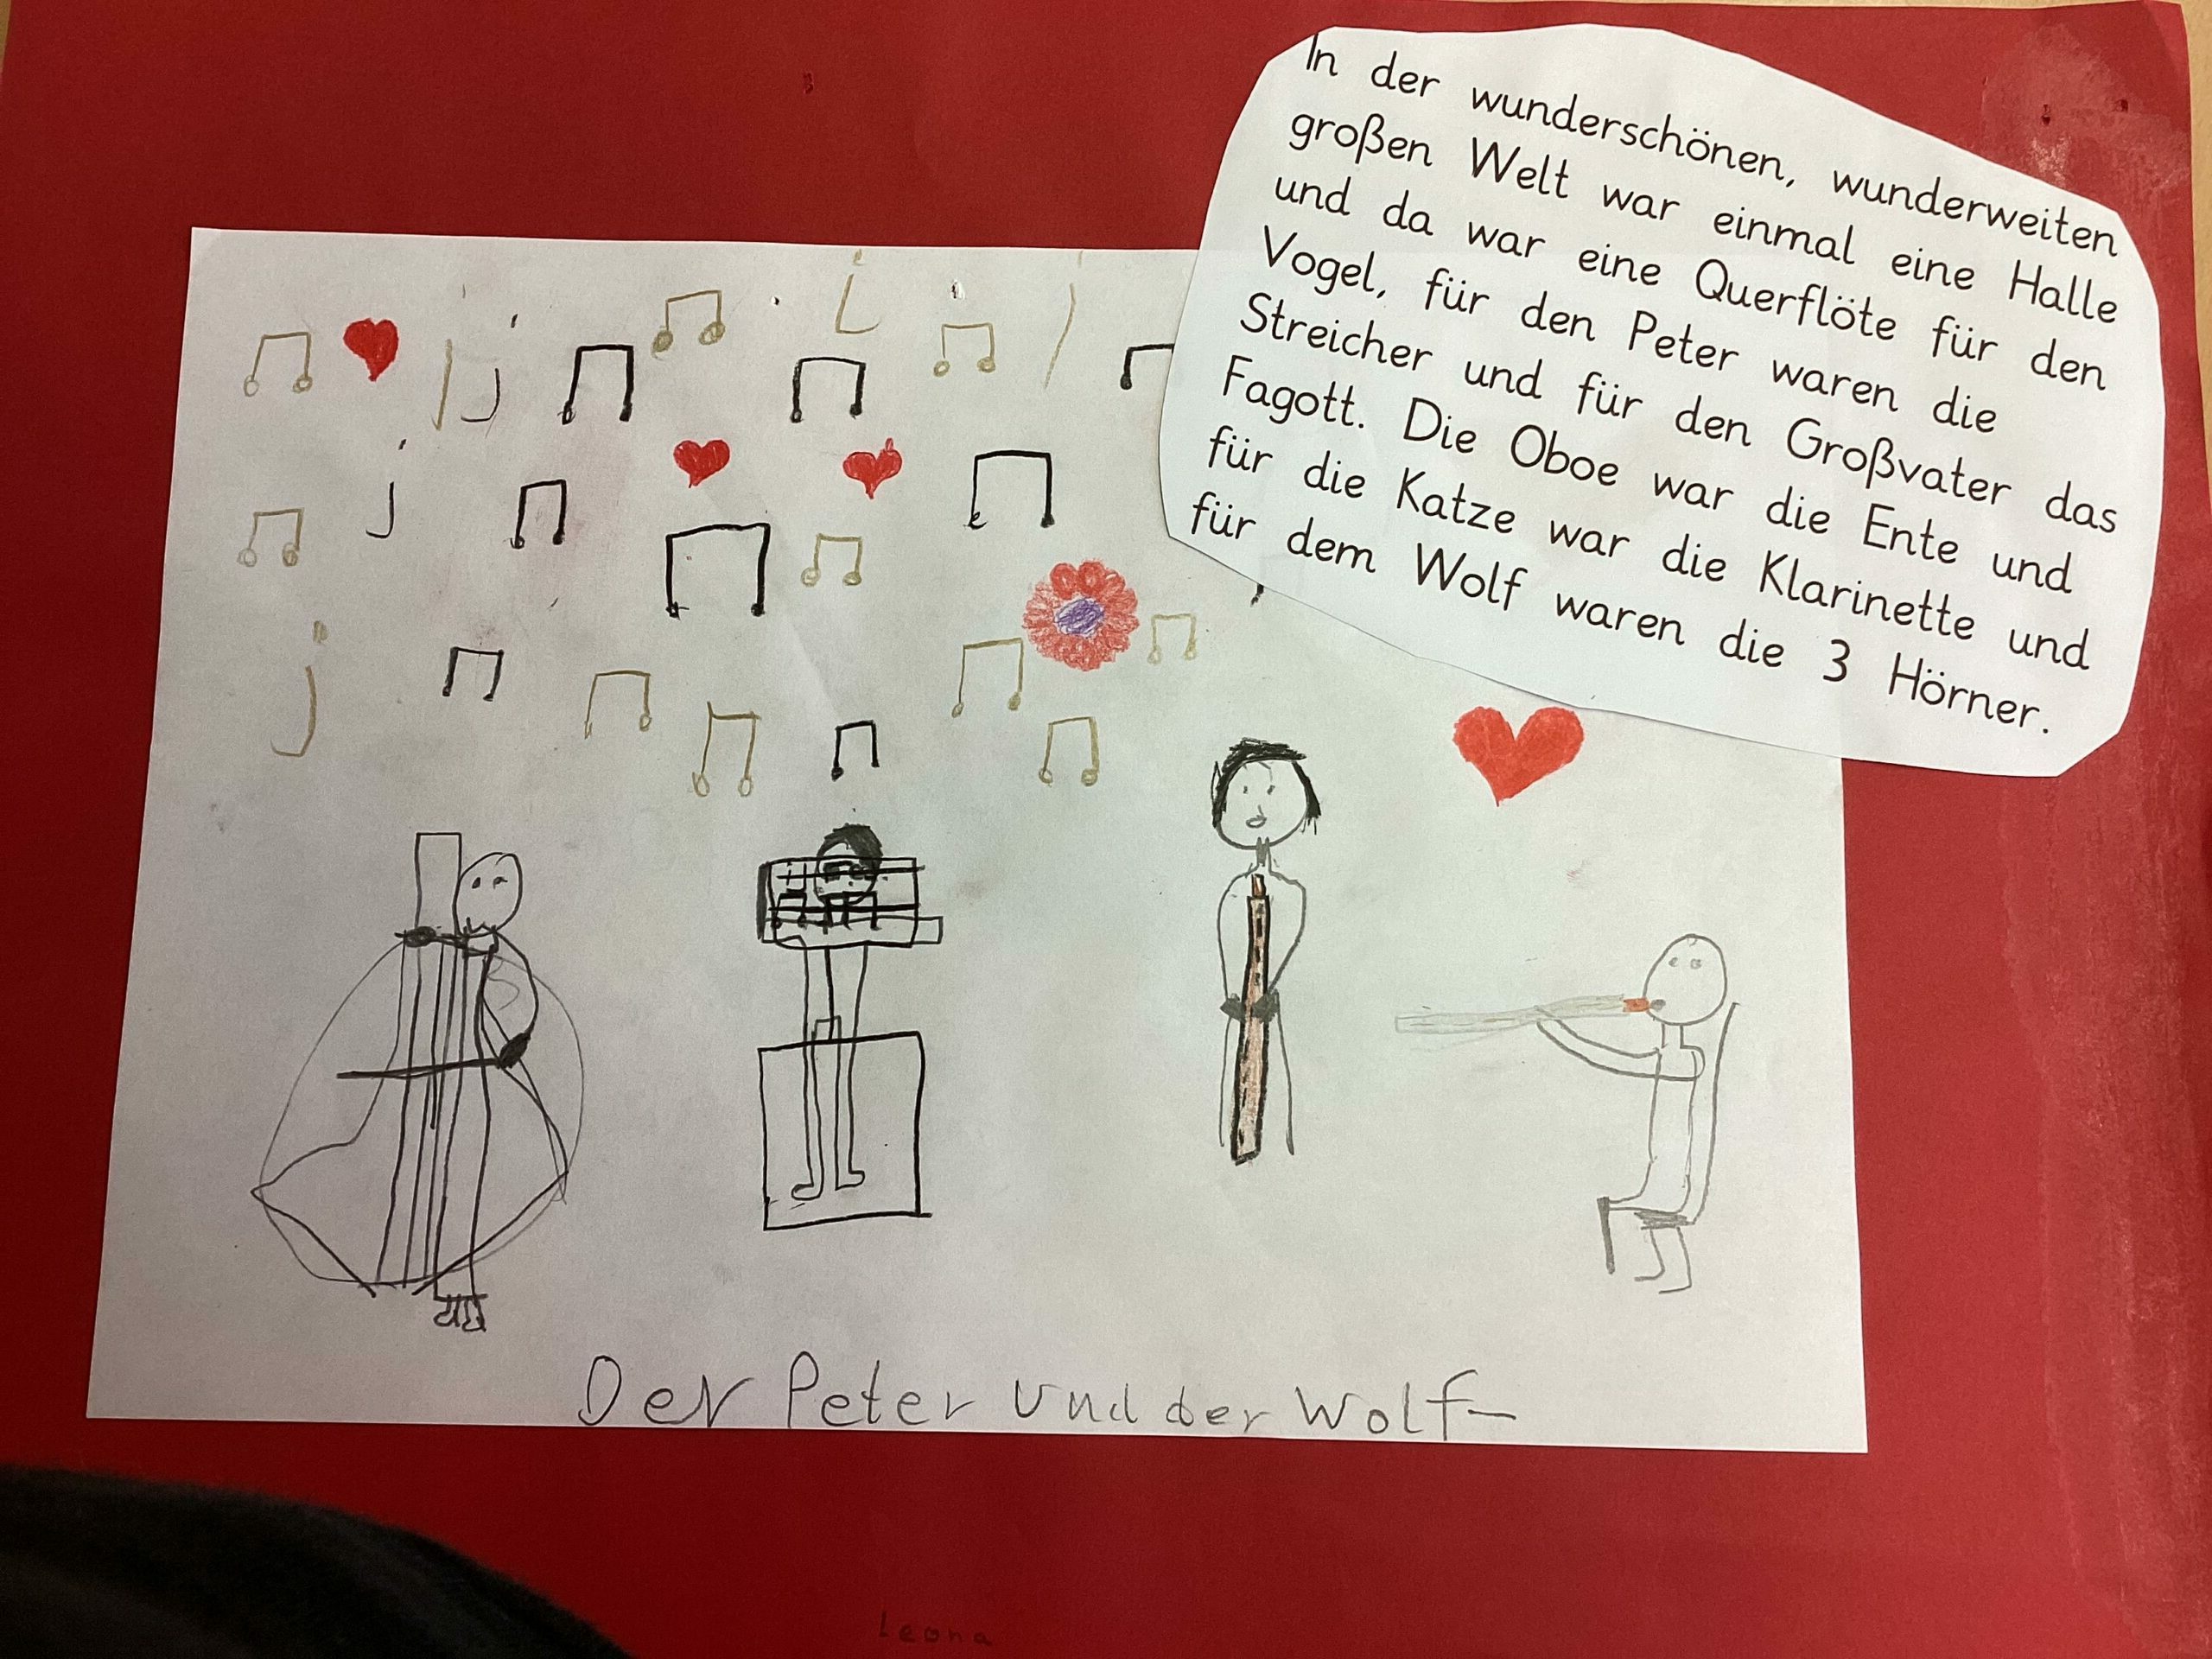 In der wunderschönen, wunderweiten
großen Welt war einmal eine Halle
und da war eine Querflöte für den
Vogel, für den Peter waren die
Streicher und für den Großvater das
Fagott. Die Oboe war die Ente und
für die Katze war die Klarinette und
für dem Wolf waren die 3 Hörner.
Der Peter und der Wolf
Leona